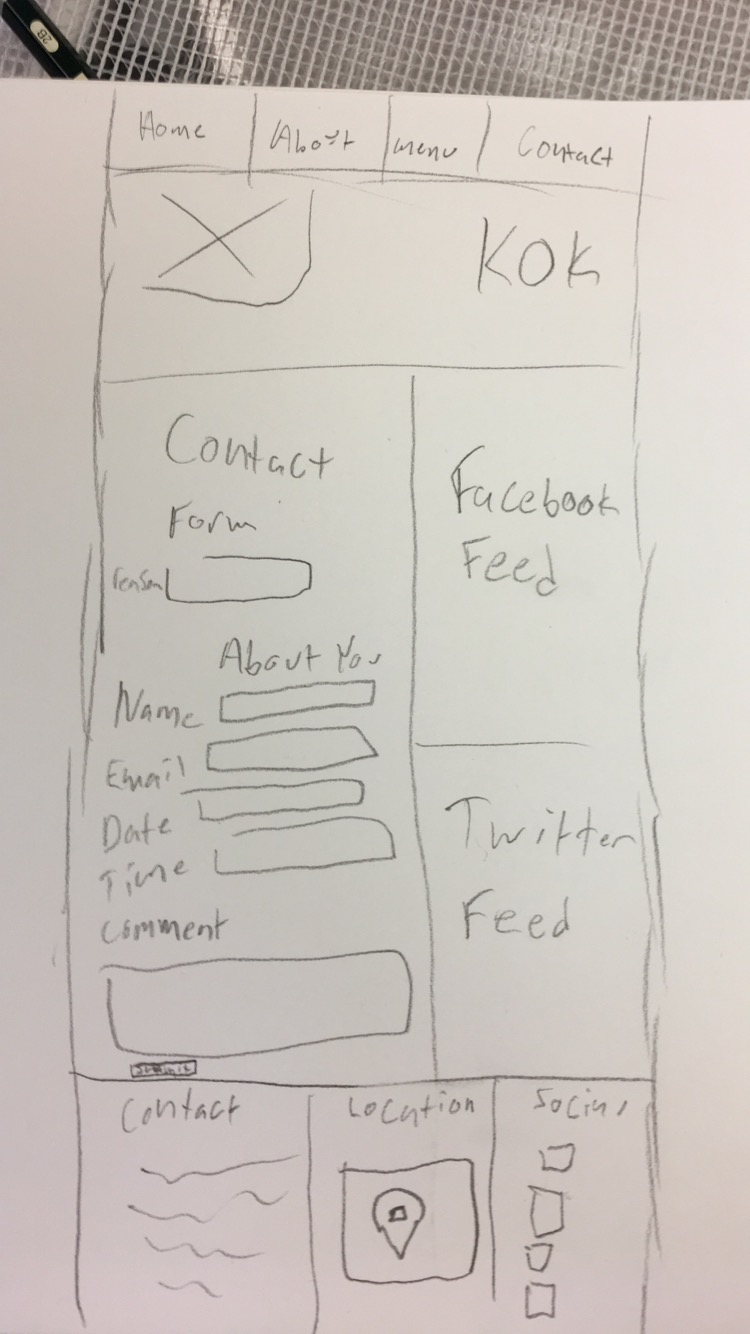 2B
Home About menu Contact
KOK
Contact
Form
reason
About You
Name
Email
Date
Time
comment
submit
Facebook
Feed
Twitter
Feed
Contact
Location
Social